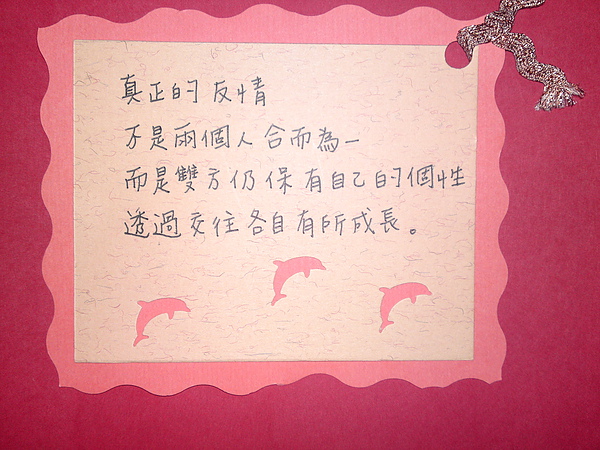 真正的友情
不是兩個人合而為一
而是雙方仍保有自己的個性
透過交往各自有所成長。